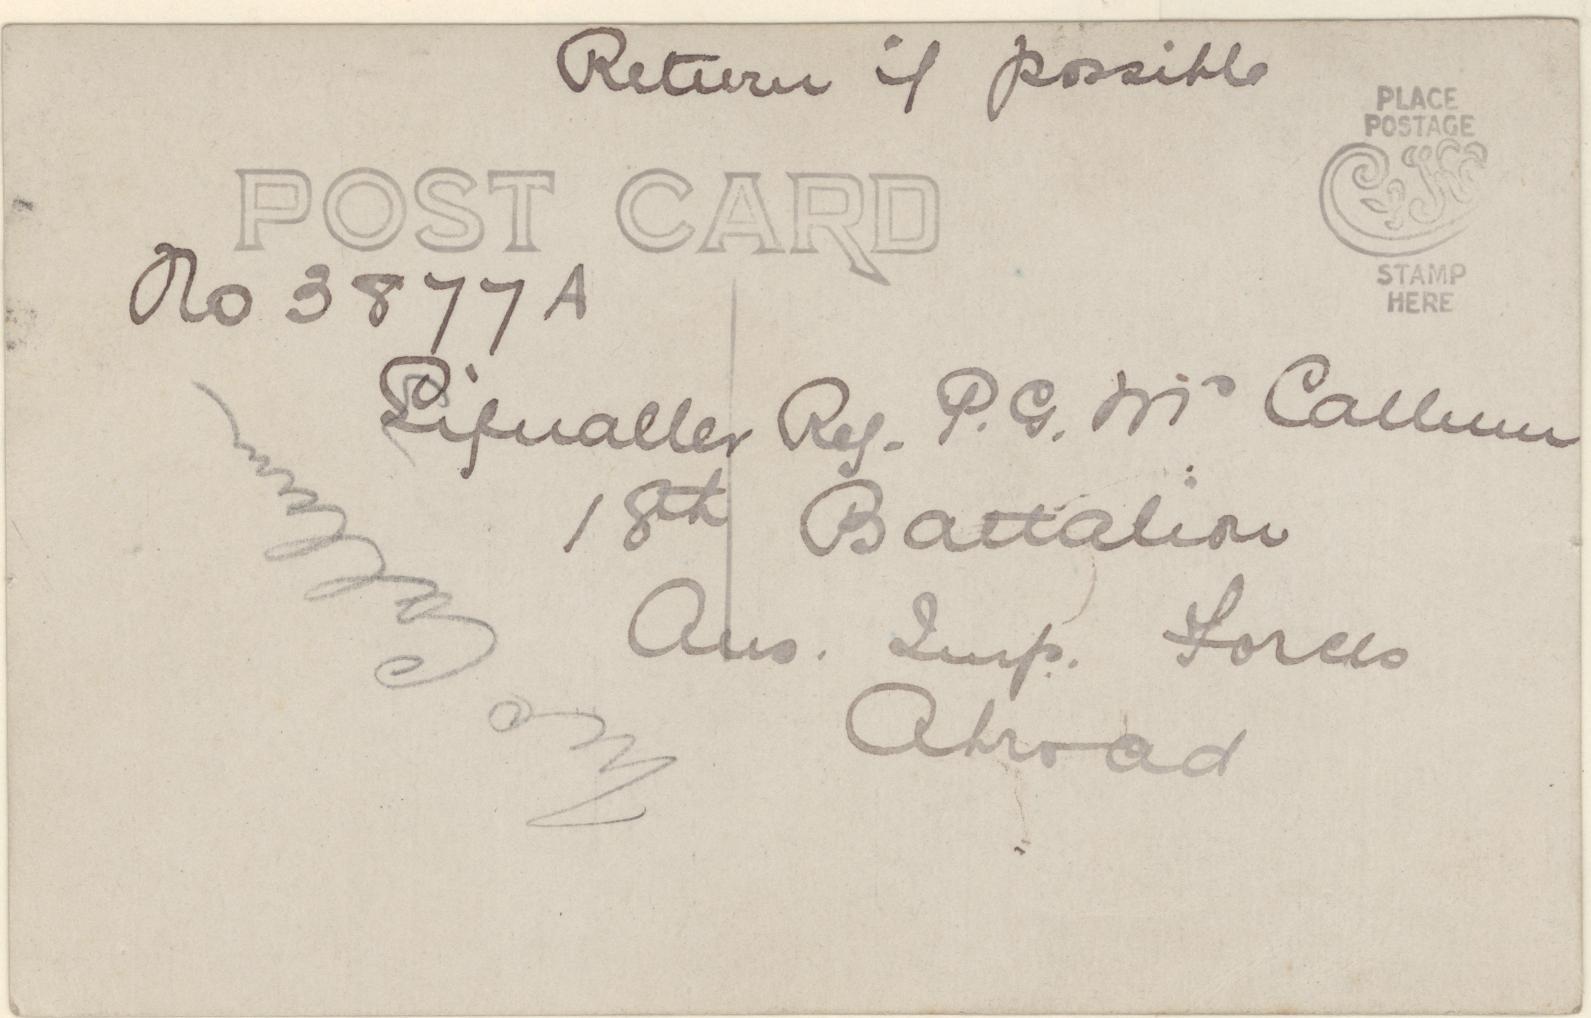 Return if possible
PLACE
POSTAGE
STAMP
HERE
POST CARD
No 3877A
Signaller Reg. P.G. Mc Callum
18th Battalion
Aus. Imp. Forces
Abroad
McCallum